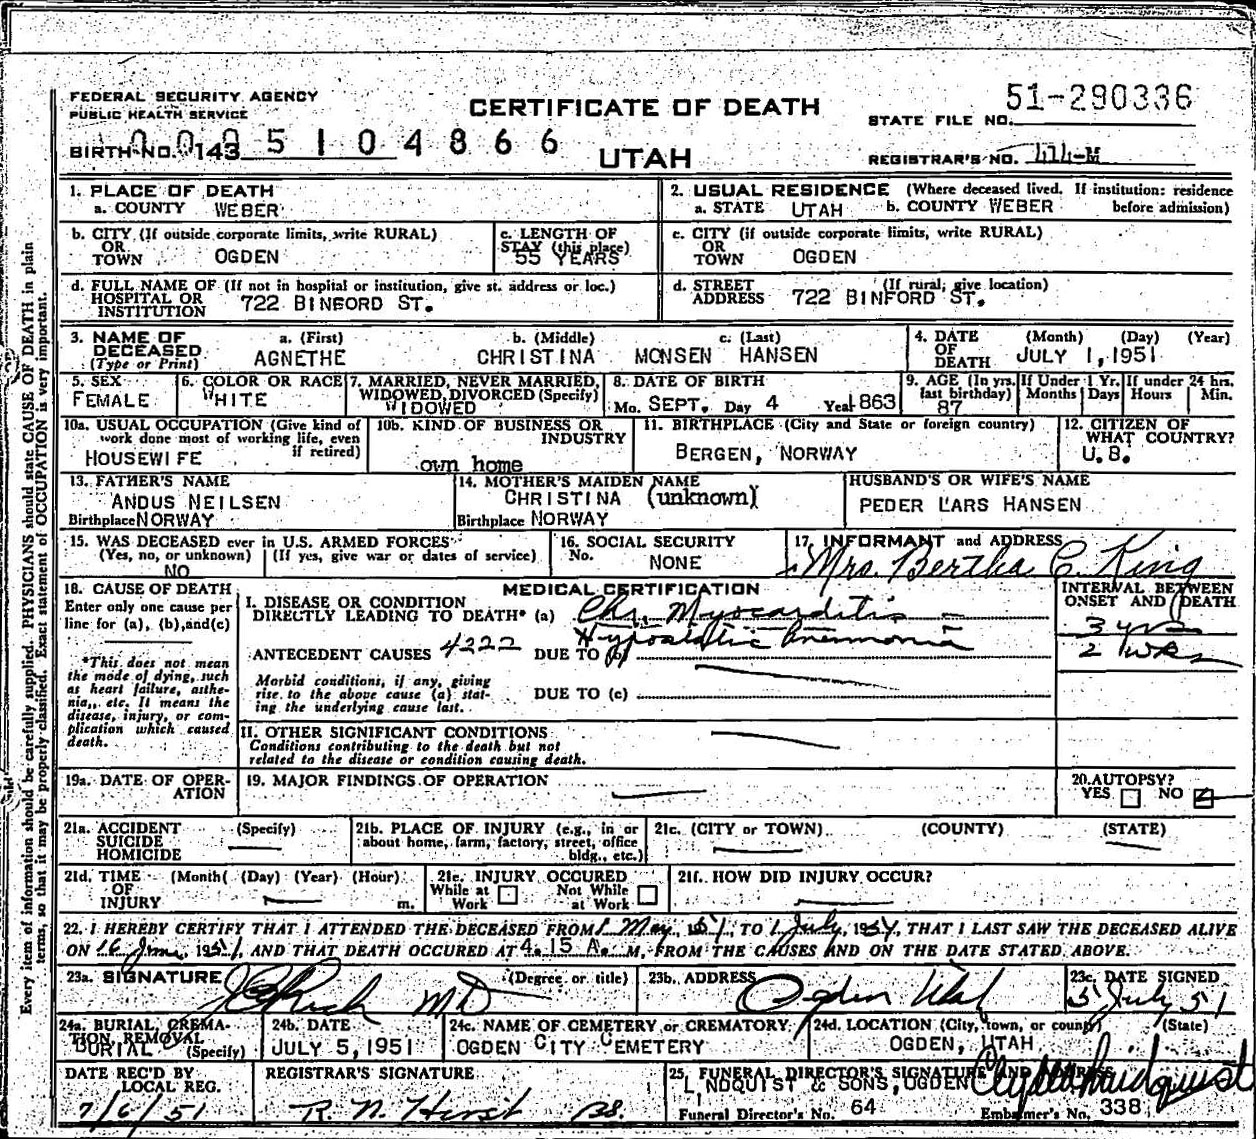 FEDERAL SECURITY AGENCY
PUBLIC HEALTH SERVICE
CERTIFICATE OF DEATH
51-290336
STATE FILE NO.
BIRTH NO. 143 0005104866
UTAH
REGISTRAR'S NO. 414-M
1. PLACE OF DEATH
a. COUNTY WEBER
2. USUAL RESIDENCE (Where deceased lived. If institution: residence before admission)
a. STATE UTAH b. COUNTY WEBER
b. CITY (If outside corporate limits, write RURAL)
OR TOWN OGDEN
c. LENGTH OF STAY (this place)
55 YEARS
c. CITY (if outside corporate limits, write RURAL)
OR TOWN OGDEN
d. FULL NAME OF (If not in hospital or institution, give st. address or loc.)
HOSPITAL OR INSTITUTION 722 BINFORD ST.
d. STREET ADDRESS (If rural, give location)
722 BINFORD ST.
3. NAME OF DECEASED (Type or Print)
a. (First) b. (Middle) c. (Last)
AGNETHE CHRISTINA MONSEN HANSEN
4. DATE OF DEATH (Month) (Day) (Year)
JULY 1, 1951
5. SEX
FEMALE
6. COLOR OR RACE
WHITE
7. MARRIED, NEVER MARRIED, WIDOWED, DIVORCED (Specify)
WIDOWED
8. DATE OF BIRTH
Mo. SEPT. Day 4 Year 1863
9. AGE (In yrs. last birthday)
87
If Under 1 Yr. Months Days
If under 24 hrs. Hours Min.
10a. USUAL OCCUPATION (Give kind of work done most of working life, even if retired)
HOUSEWIFE
10b. KIND OF BUSINESS OR INDUSTRY
own home
11. BIRTHPLACE (City and State or foreign country)
BERGEN, NORWAY
12. CITIZEN OF WHAT COUNTRY?
U.S.
13. FATHER'S NAME
ANDUS NEILSEN
Birthplace NORWAY
14. MOTHER'S MAIDEN NAME
CHRISTINA (unknown)
Birthplace NORWAY
HUSBAND'S OR WIFE'S NAME
PEDER LARS HANSEN
15. WAS DECEASED ever in U.S. ARMED FORCES
(Yes, no, or unknown) (If yes, give war or dates of service)
NO
16. SOCIAL SECURITY
No. NONE
17. INFORMANT and ADDRESS
Mrs. Bertha C. King
18. CAUSE OF DEATH
Enter only one cause per line for (a), (b), and (c)
*This does not mean the mode of dying, such as heart failure, asthenia, etc. It means the disease, injury, or complication which caused death.
MEDICAL CERTIFICATION
INTERVAL BETWEEN ONSET AND DEATH
I. DISEASE OR CONDITION
DIRECTLY LEADING TO DEATH* (a) Chr. Myocarditis
3 yrs
ANTECEDENT CAUSES 4222 DUE TO (b) Hypostatic Pneumonia
2 wks
Morbid conditions, if any, giving rise to the above cause (a) stating the underlying cause last.
DUE TO (c)
II. OTHER SIGNIFICANT CONDITIONS
Conditions contributing to the death but not
related to the disease or condition causing death.
19a. DATE OF OPERATION
19. MAJOR FINDINGS OF OPERATION
20. AUTOPSY?
YES NO
21a. ACCIDENT SUICIDE HOMICIDE (Specify)
21b. PLACE OF INJURY (e.g., in or about home, farm, factory, street, office bldg., etc.)
21c. (CITY or TOWN) (COUNTY) (STATE)
21d. TIME OF INJURY (Month) (Day) (Year) (Hour) m.
21e. INJURY OCCURED
While at Work Not While at Work
21f. HOW DID INJURY OCCUR?
22. I HEREBY CERTIFY THAT I ATTENDED THE DECEASED FROM 1 May, 1951, TO 1 July, 1951, THAT I LAST SAW THE DECEASED ALIVE
ON 16 June, 1951, AND THAT DEATH OCCURED AT 4.15 A. M, FROM THE CAUSES AND ON THE DATE STATED ABOVE.
23a. SIGNATURE (Degree or title)
Rich MD
23b. ADDRESS
Ogden Utah
23c. DATE SIGNED
5 July 51
24a. BURIAL, CREMATION, REMOVAL (Specify)
BURIAL
24b. DATE
JULY 5, 1951
24c. NAME OF CEMETERY or CREMATORY
OGDEN CITY CEMETERY
24d. LOCATION (City, town, or county) (State)
OGDEN, UTAH
DATE REC'D BY LOCAL REG.
7/6/51
REGISTRAR'S SIGNATURE
R. N. Hirst
25. FUNERAL DIRECTOR'S SIGNATURE AND ADDRESS
LINDQUIST & SONS, OGDEN
Clyde Lindquist
Funeral Director's No. 64 Embalmer's No. 338
Every item of information should be carefully supplied. PHYSICIANS should state CAUSE OF DEATH in plain
terms, so that it may be properly classified. Exact statement of OCCUPATION is very important.